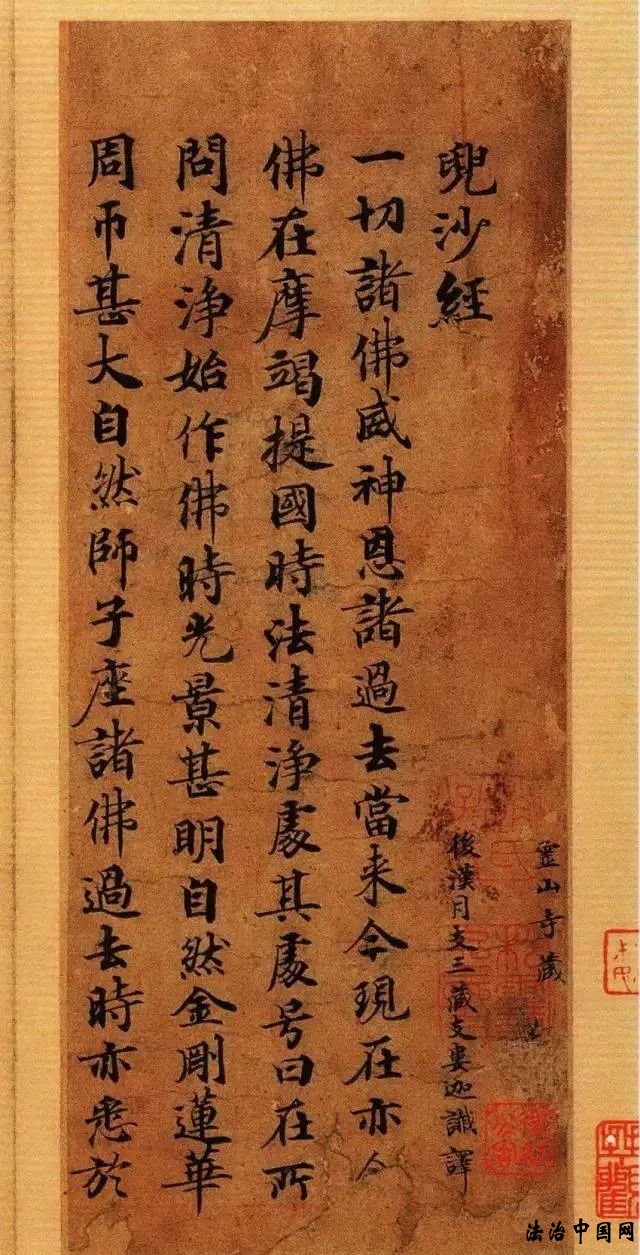 靈山寺藏
兜沙經
後漢月支三藏支婁迦讖譯
一切諸佛威神恩諸過去當来今現在亦尒
佛在摩竭提國時法清淨處其處号曰在所
問清淨始作佛時光景甚明自然金剛蓮華
周帀甚大自然師子座諸佛過去時亦悉於
法治中国网